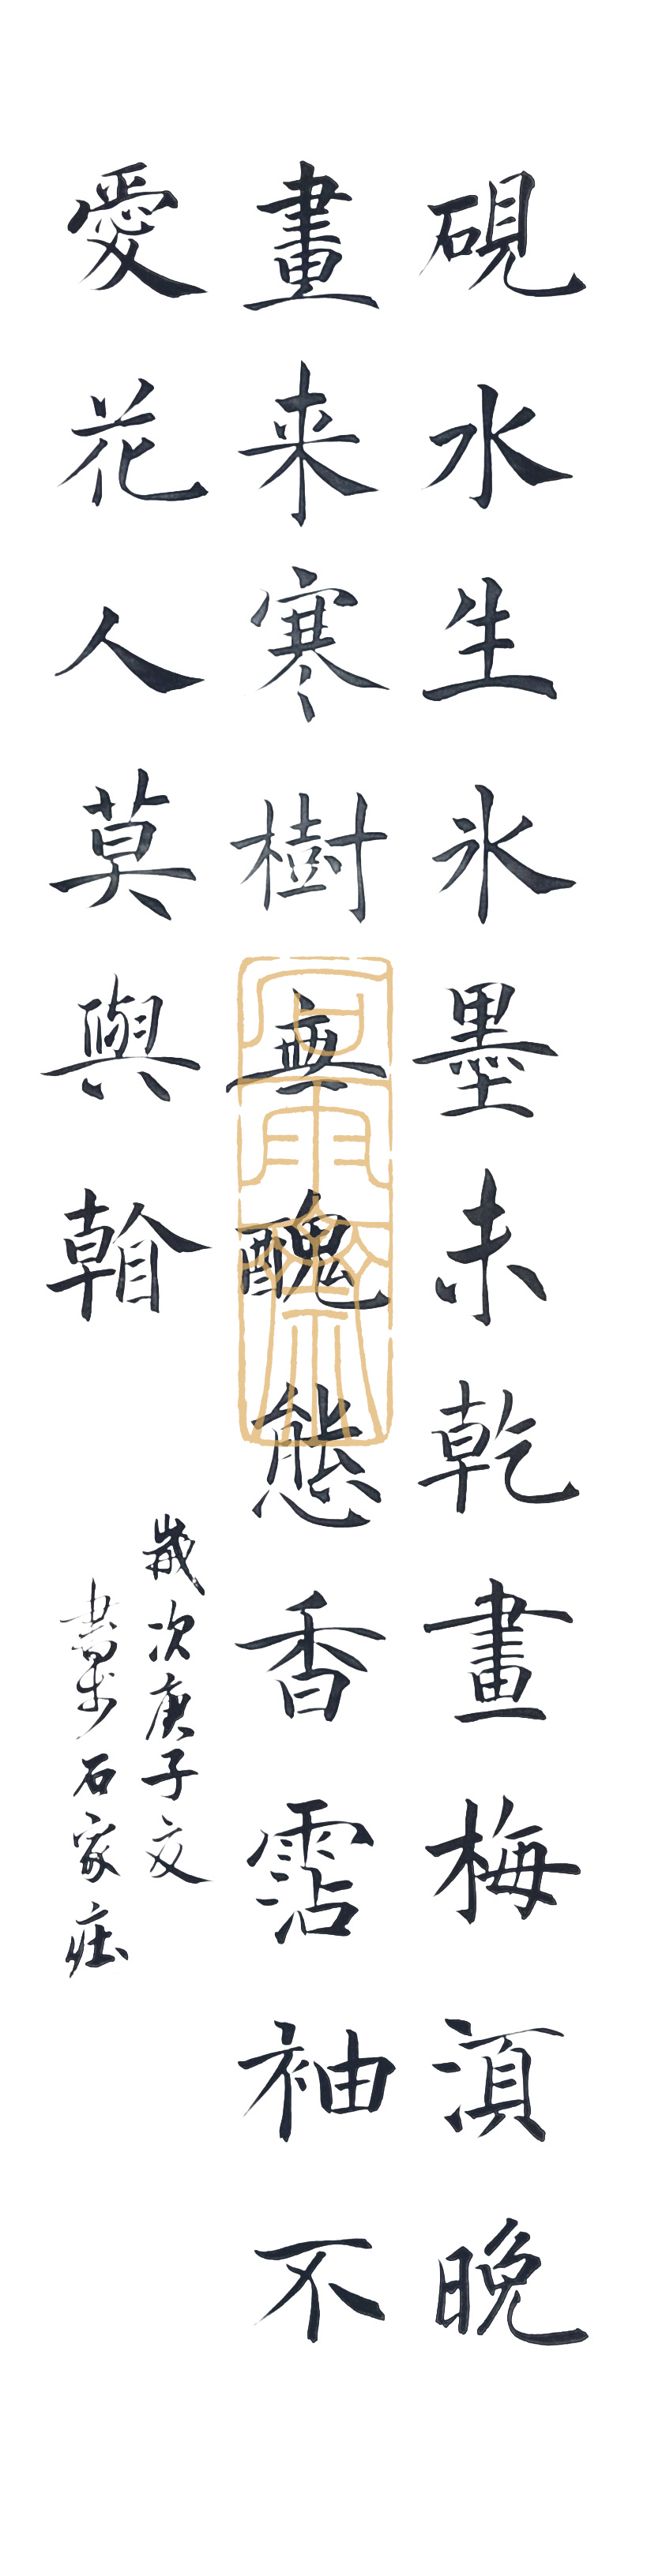 硯水生氷墨未乾畫梅湏晚
畫来寒樹無醜態香霑袖不
愛花人莫與看
歲次庚子夏
書於石家莊